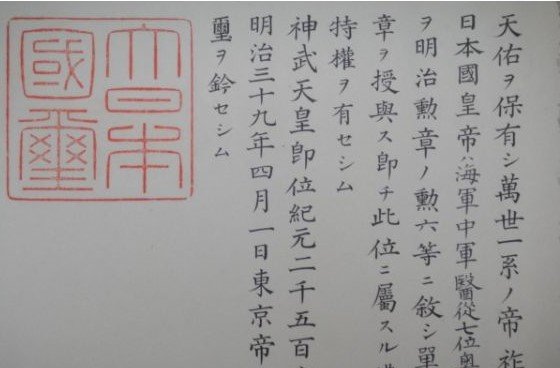 天佑ヲ保有シ萬世一系ノ帝祚
日本國皇帝ハ海軍中軍醫從七位奧
ヲ明治勲章ノ勲六等ニ敘シ單
章ヲ授與ス卽チ此位ニ屬スル
特權ヲ有セシム
神武天皇卽位紀元二千五百
明治三十九年四月一日東京帝
璽ヲ鈐セシム
大日本
國璽